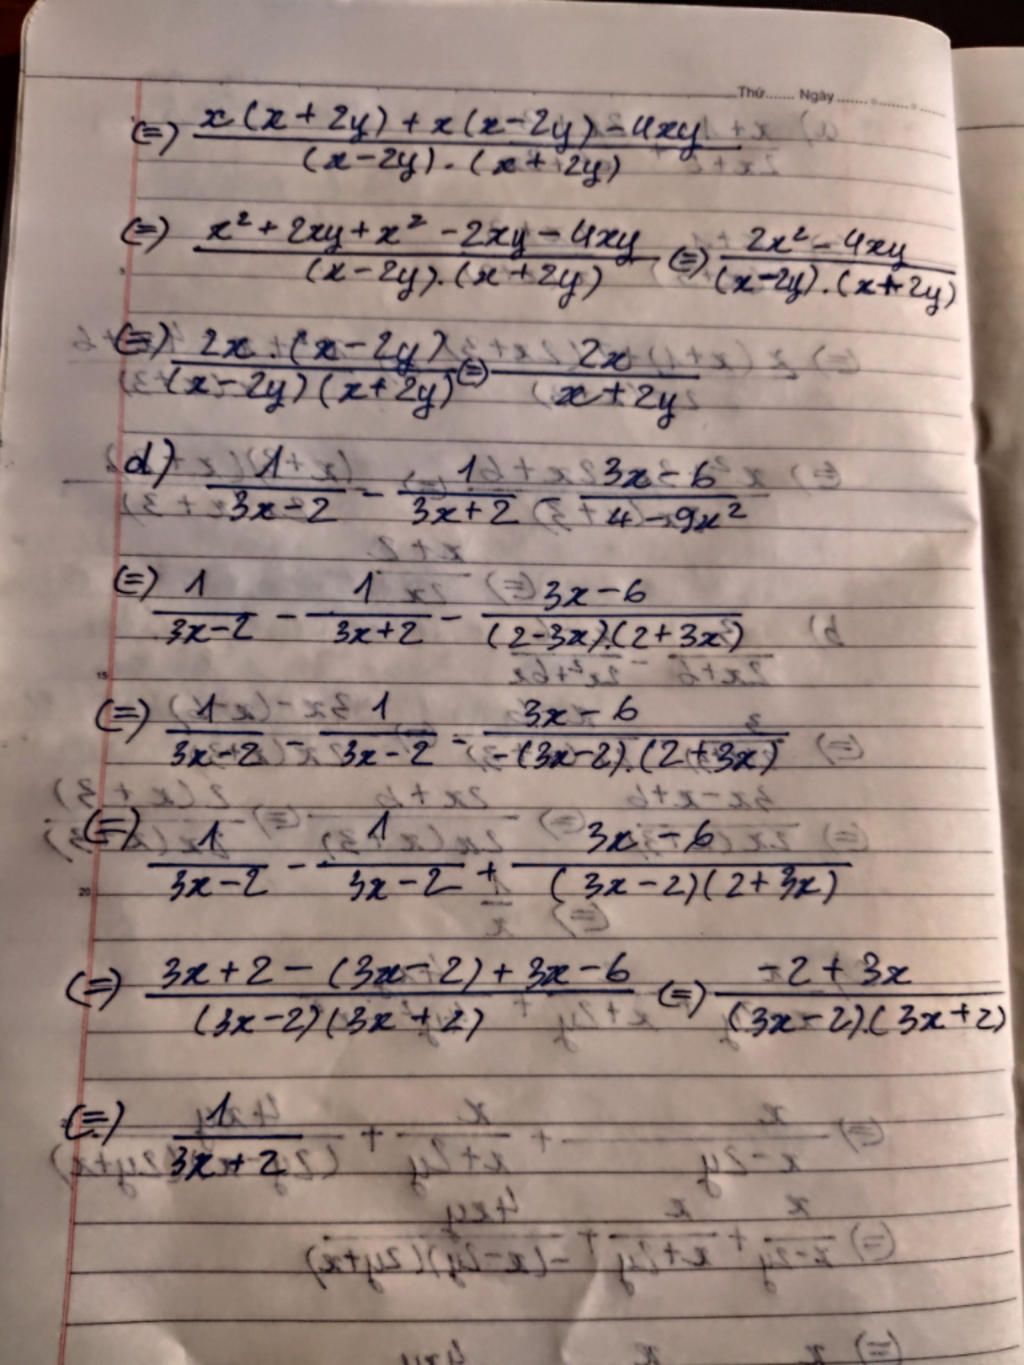 Thứ....... Ngày ....................
(=) \frac{x(x+2y)+x(x-2y)-4xy}{(x-2y).(x+2y)}
(=) \frac{x²+2xy+x²-2xy-4xy}{(x-2y).(x+2y)} (=) \frac{2x²-4xy}{(x-2y).(x+2y)}
(=) \frac{2x.(x-2y)}{(x-2y)(x+2y)} (=) \frac{2x}{x+2y}
d) \frac{1}{3x-2} - \frac{1}{3x+2} - \frac{3x-6}{4-9x²}
(=) \frac{1}{3x-2} - \frac{1}{3x+2} - \frac{3x-6}{(2-3x).(2+3x)}
15
(=) \frac{1}{3x-2} - \frac{1}{3x-2} - \frac{3x-6}{-(3x-2).(2+3x)}
(=) \frac{1}{3x-2} - \frac{1}{3x-2} + \frac{3x-6}{(3x-2)(2+3x)}
20
(=) \frac{3x+2-(3x-2)+3x-6}{(3x-2)(3x+2)} (=) \frac{-2+3x}{(3x-2).(3x+2)}
(=) \frac{1}{3x+2}